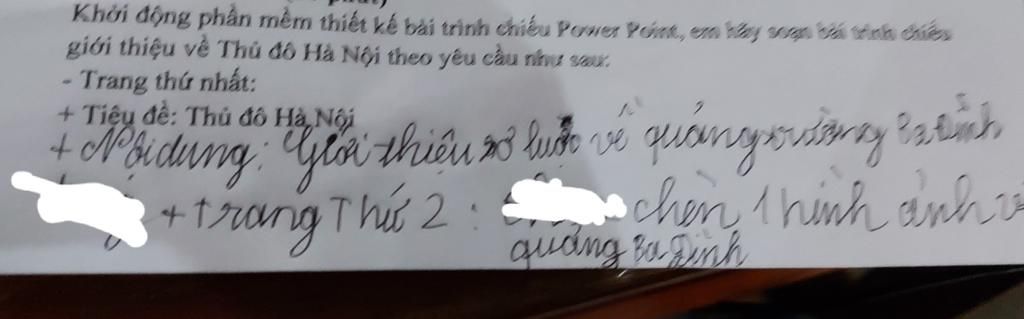 Khởi động phần mềm thiết kế bài trình chiếu Power Point, em hãy soạn bài trình chiếu
giới thiệu về Thủ đô Hà Nội theo yêu cầu như sau:
- Trang thứ nhất:
+ Tiêu đề: Thủ đô Hà Nội
+ Nội dung: Giới thiệu sơ lược về quảng trường Ba Đình
+ Trang Thứ 2: chèn 1 hình ảnh
quảng Ba Đình